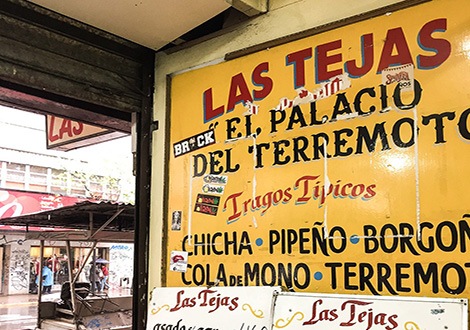 LAS TEJAS
EL PALACIO
DEL TERREMOTO
BRICK
Tragos Típicos
CHICHA • PIPEÑO • BORGOÑ
COLA DE MONO • TERREMOT
Las Tejas
Las Tejas
LAS